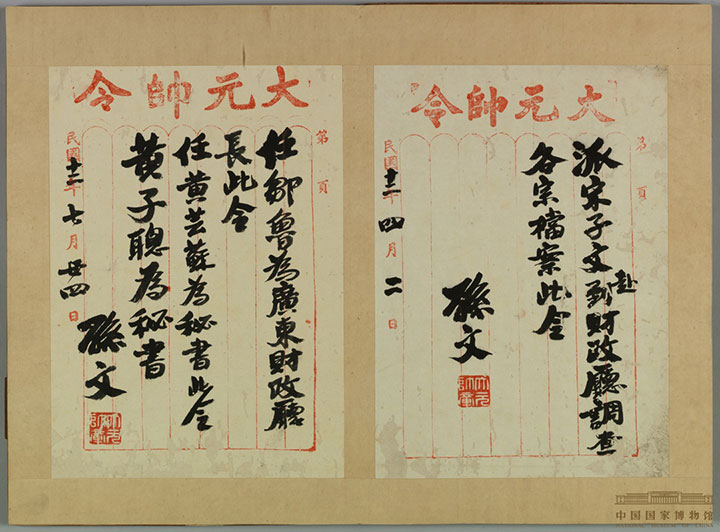 大元帥令
第 頁
派宋子文到財政廳調查
赴
各宗檔案此令
孫文
大元帥章
民國十二年四月二日
大元帥令
第 頁
任鄒魯為廣東財政廳
長此令
任黃芸蘇為秘書此令
黃子聰為秘書
孫文
大元帥章
民國十二年七月廿四日
中国国家博物馆